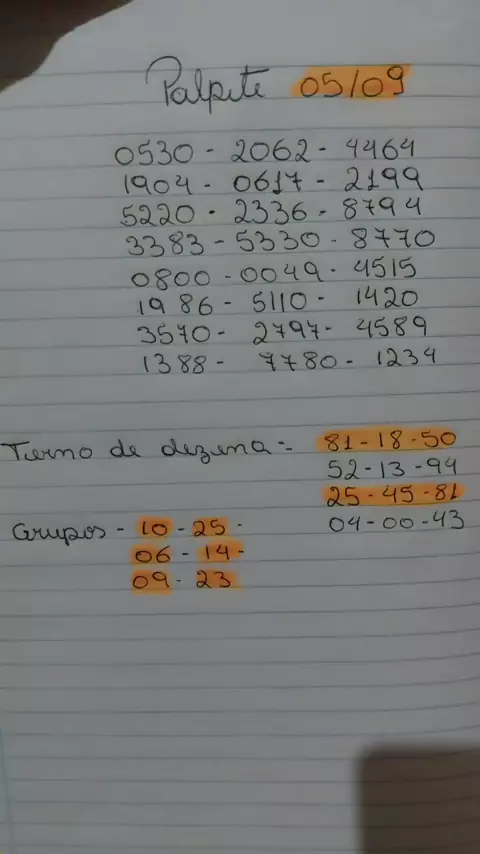 Palpite 05/09
0530 - 2062 - 4464
1904 - 0617 - 2199
5220 - 2336 - 8794
3383 - 5330 - 8770
0800 - 0049 - 4515
1986 - 5110 - 1420
3570 - 2797 - 4589
1388 - 7780 - 1234
Turno de dezena :- 81-18-50
52-13-94
25-45-81
04-00-43
Grupos - 10 - 25 -
06 - 14 -
09 - 23